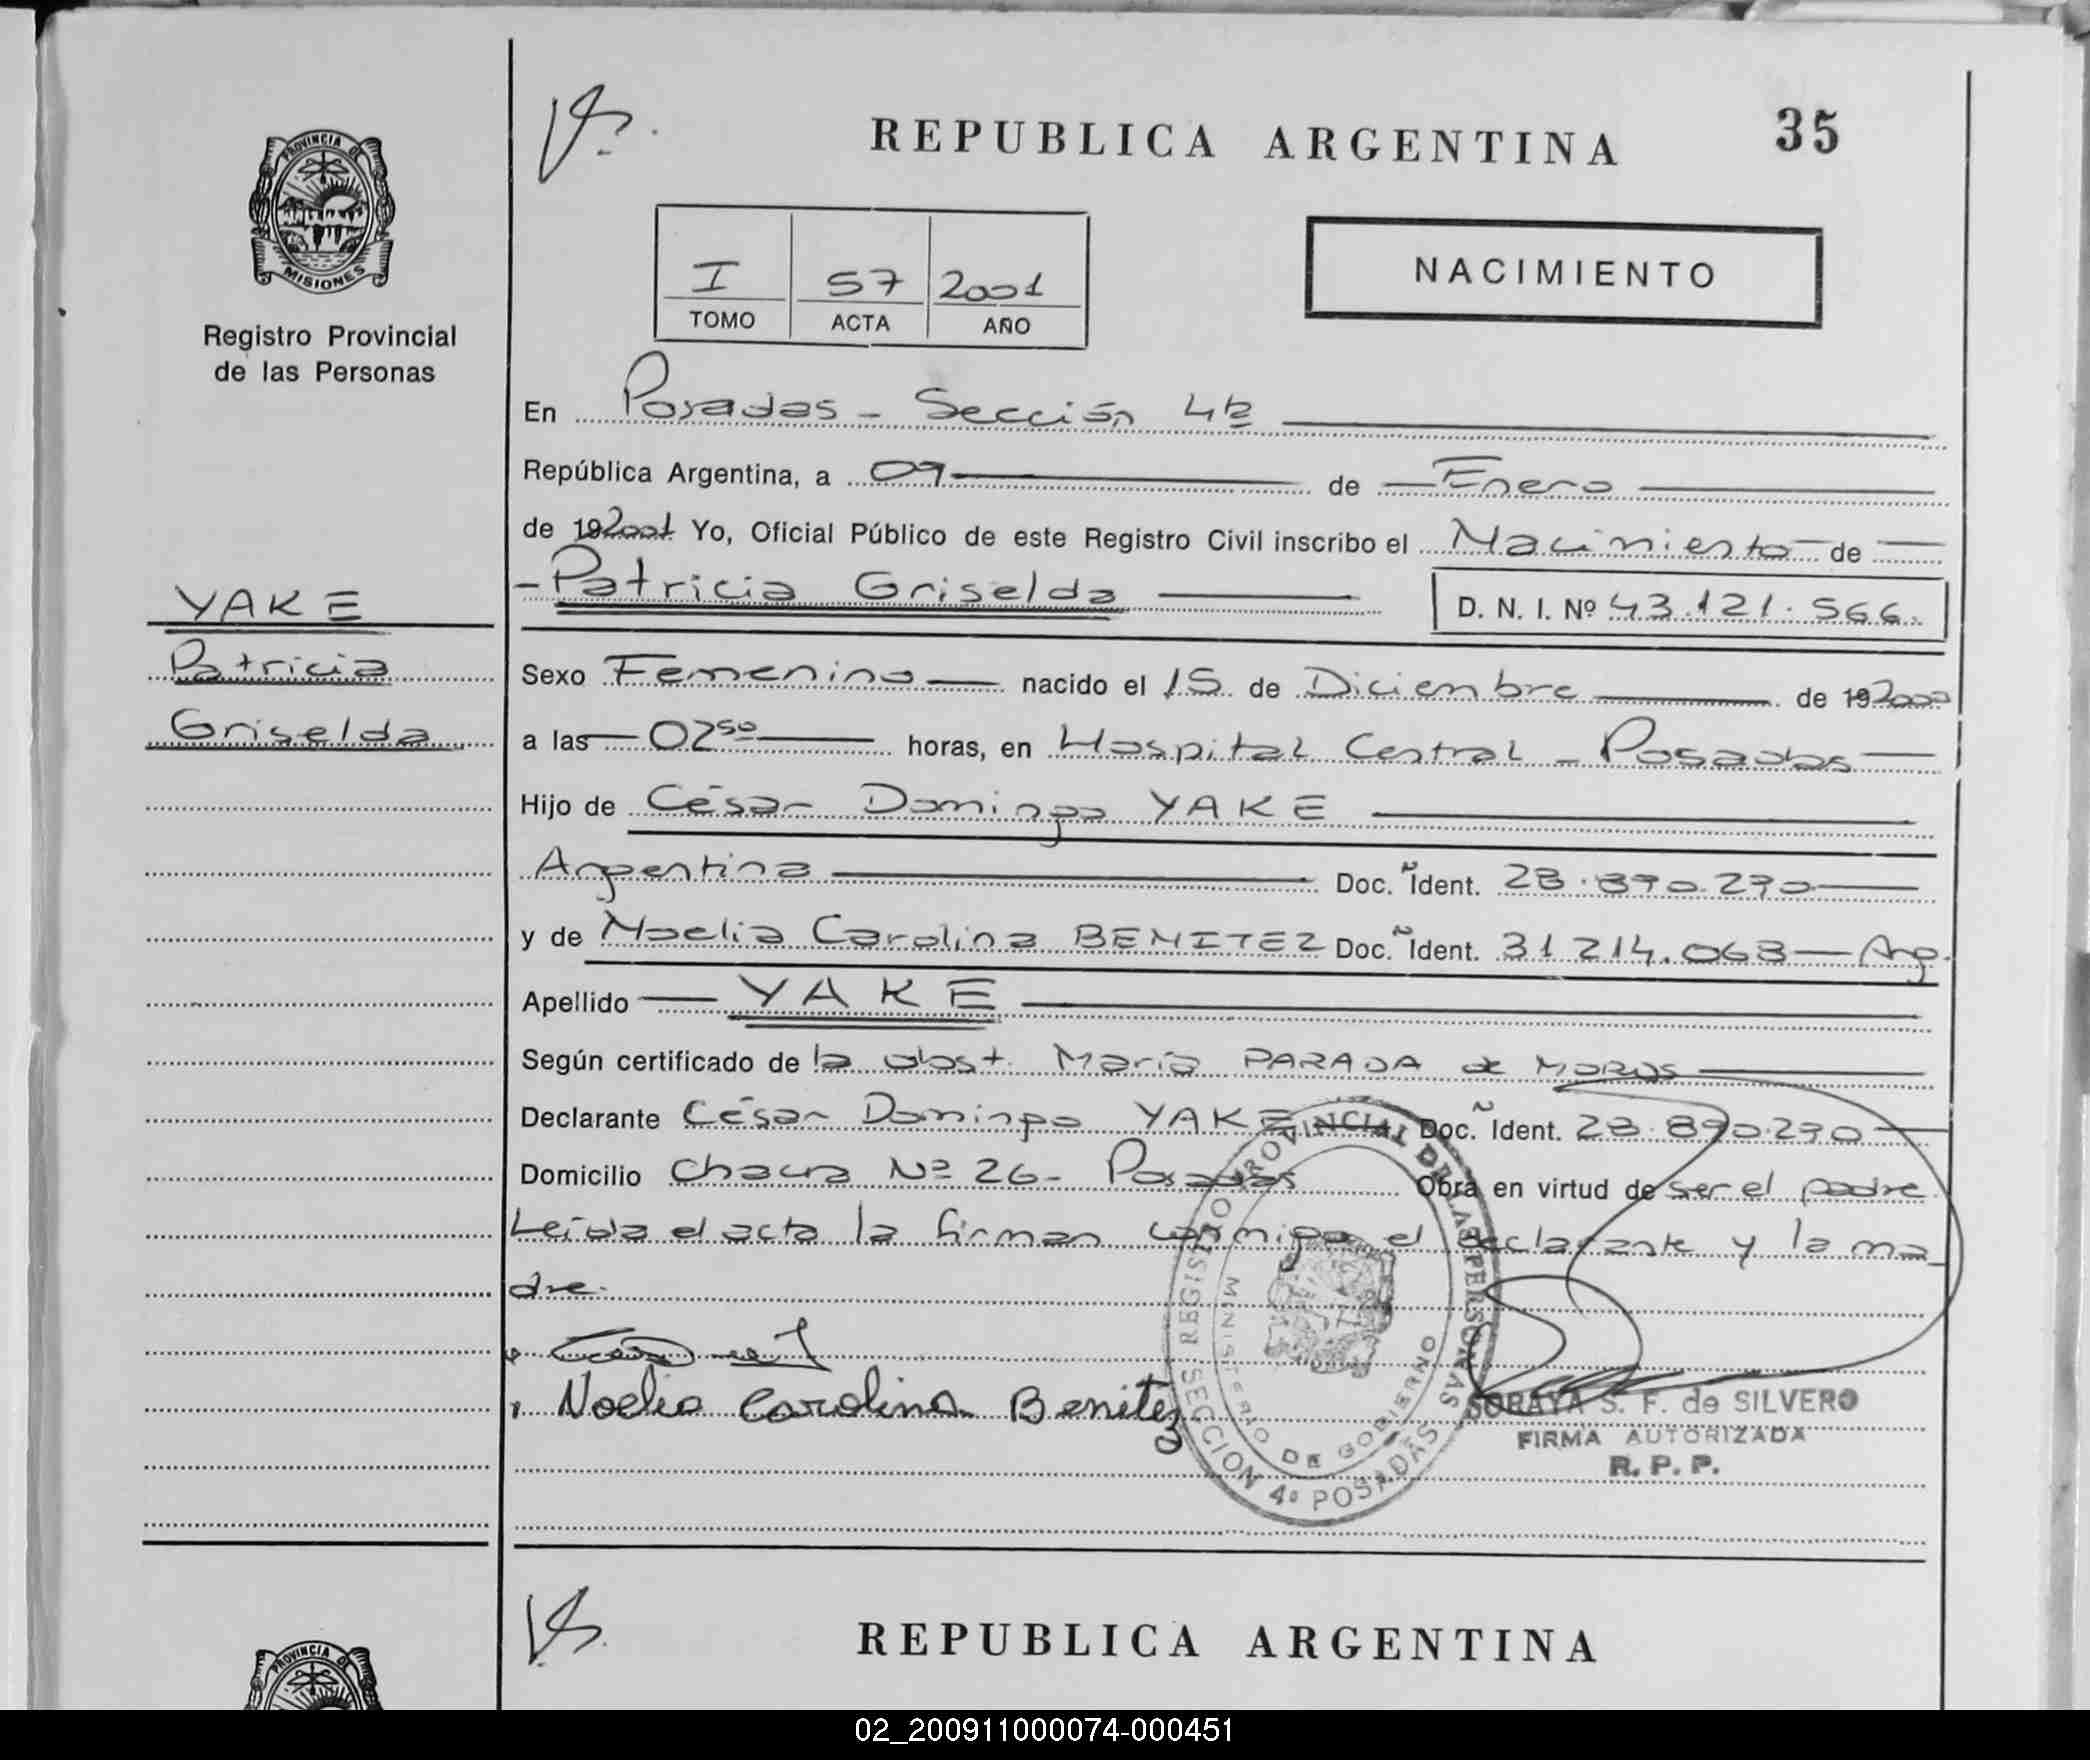 REPUBLICA ARGENTINA
35
PROVINCIA DE
MISIONES
Registro Provincial
de las Personas
I 57 2001
TOMO ACTA AÑO
NACIMIENTO
En Posadas - Sección 4ta
República Argentina, a 09 de Enero
de 19 2001 Yo, Oficial Público de este Registro Civil inscribo el Nacimiento de
- Patricia Griselda
D. N. I. Nº 43.121.566.
YAKE
Patricia
Griselda
Sexo Femenino nacido el 15 de Diciembre de 19 2000
a las 02 50 horas, en Hospital Central - Posadas
Hijo de César Domingo YAKE
Argentina Doc. Ñ Ident. 28.890.290
y de Noelia Carolina BENITEZ Doc. Ñ Ident. 31 214.068 - Arg.
Apellido YAKE
Según certificado de la obst. María PARADA de MOROS
Declarante César Domingo YAKE Doc. Ñ Ident. 28.890.290
Domicilio Chacra Nº 26 - Posadas Obra en virtud de ser el padre
Leída el acta la firman conmigo el declarante y la ma
dre.
Noelia Carolina Benitez
REGISTRO PROVINCIAL DE LAS PERSONAS
MINISTERIO DE GOBIERNO
SECCION 4º POSADAS
SORAYA S. F. de SILVERO
FIRMA AUTORIZADA
R. P. P.
REPUBLICA ARGENTINA
PROVINCIA DE
02_200911000074-000451